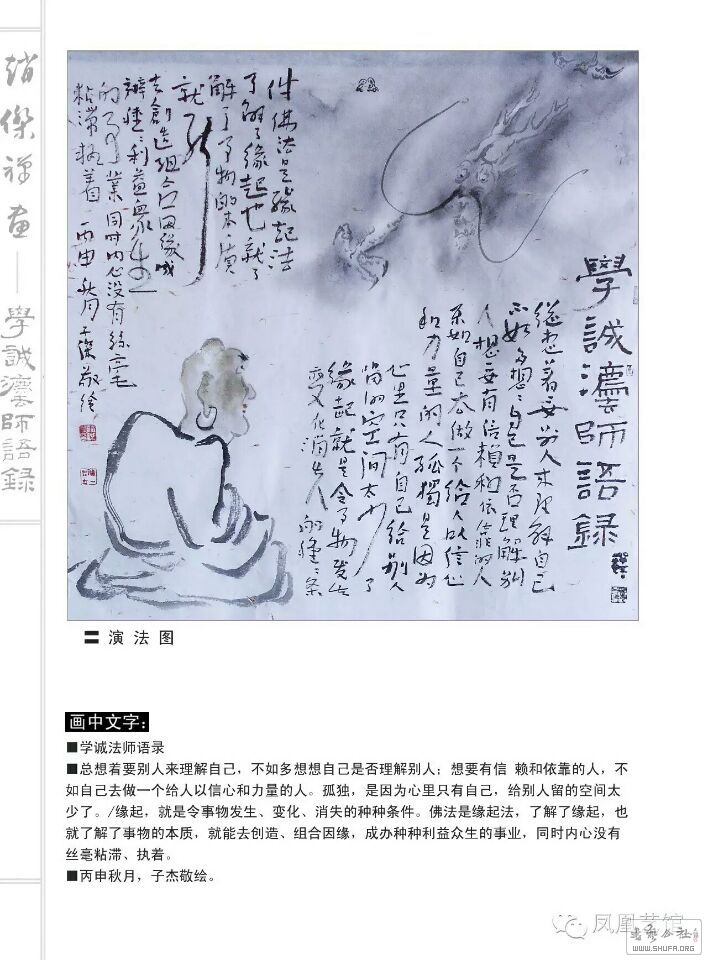 趙傑禅画——學誠灋师語錄
學誠灋师語錄
总想着要别人来理解自己
不如多想想自己是否理解别
人想要有信赖和依靠的人
不如自己去做一个给人以信心
和力量的人孤独是因为
心里只有自己给别人
留的空间太少了
缘起就是令事物发生
变化消失的种种条
件佛法是缘起法
了解了缘起也就了
解了事物的本质
就能
去創造组合因缘成
辦种种利益众生
的事業同时内心没有丝毫
粘滞執着 丙申秋月子傑敬绘
〓 演 法 图
画中文字：
■学诚法师语录
■总想着要别人来理解自己，不如多想想自己是否理解别人；想要有信 赖和依靠的人，不
如自己去做一个给人以信心和力量的人。孤独，是因为心里只有自己，给别人留的空间太
少了。/缘起，就是令事物发生、变化、消失的种种条件。佛法是缘起法，了解了缘起，也
就了解了事物的本质，就能去创造、组合因缘，成办种种利益众生的事业，同时内心没有
丝毫粘滞、执着。
■丙申秋月，子杰敬绘。
凤凰艺馆
书艺公社
WWW.SHUFA.ORG